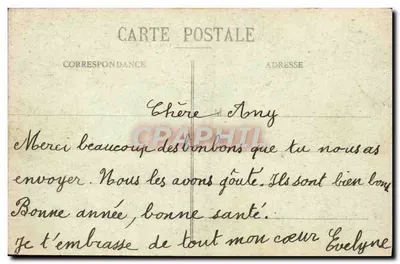 CARTE POSTALE
CORRESPONDANCE
ADRESSE
Chère Any
CPAPHIL
Merci beaucoup des bonbons que tu nous as
envoyer. Nous les avons goûte. Ils sont bien bons
Bonne année, bonne santé.
Je t'embrasse de tout mon cœur Evelyne